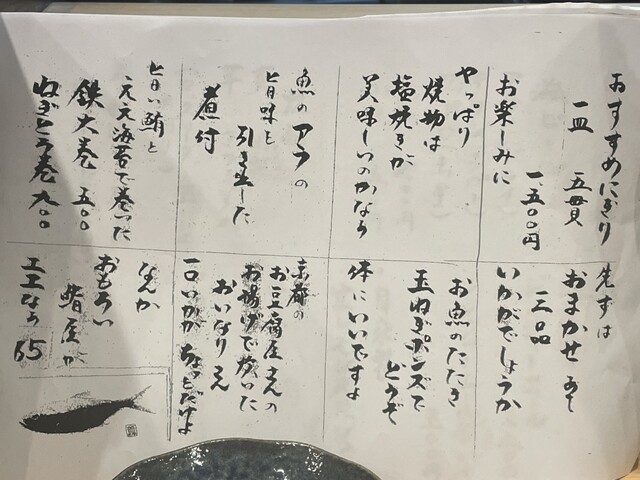 おすすめにぎり
一皿 五貫
一、五〇〇円
お楽しみに
やっぱり
焼物は
塩焼きが
美味しいのかなぁ
魚のアラの
旨味を
引き出した
煮付
旨い鮪と
ええ海苔で巻いた
鉄火巻 五〇〇
ねぎとろ巻 九〇〇
先ずは
おまかせ
三品
いかがでしょうか
お魚のたたき
玉ねぎポンズで
どうぞ
体にいいですよ
京都の
お豆腐屋さんの
お揚げで炊いた
おいなりさん
一口いかが
なんか
おもろい
鮨屋が
ええなぁ